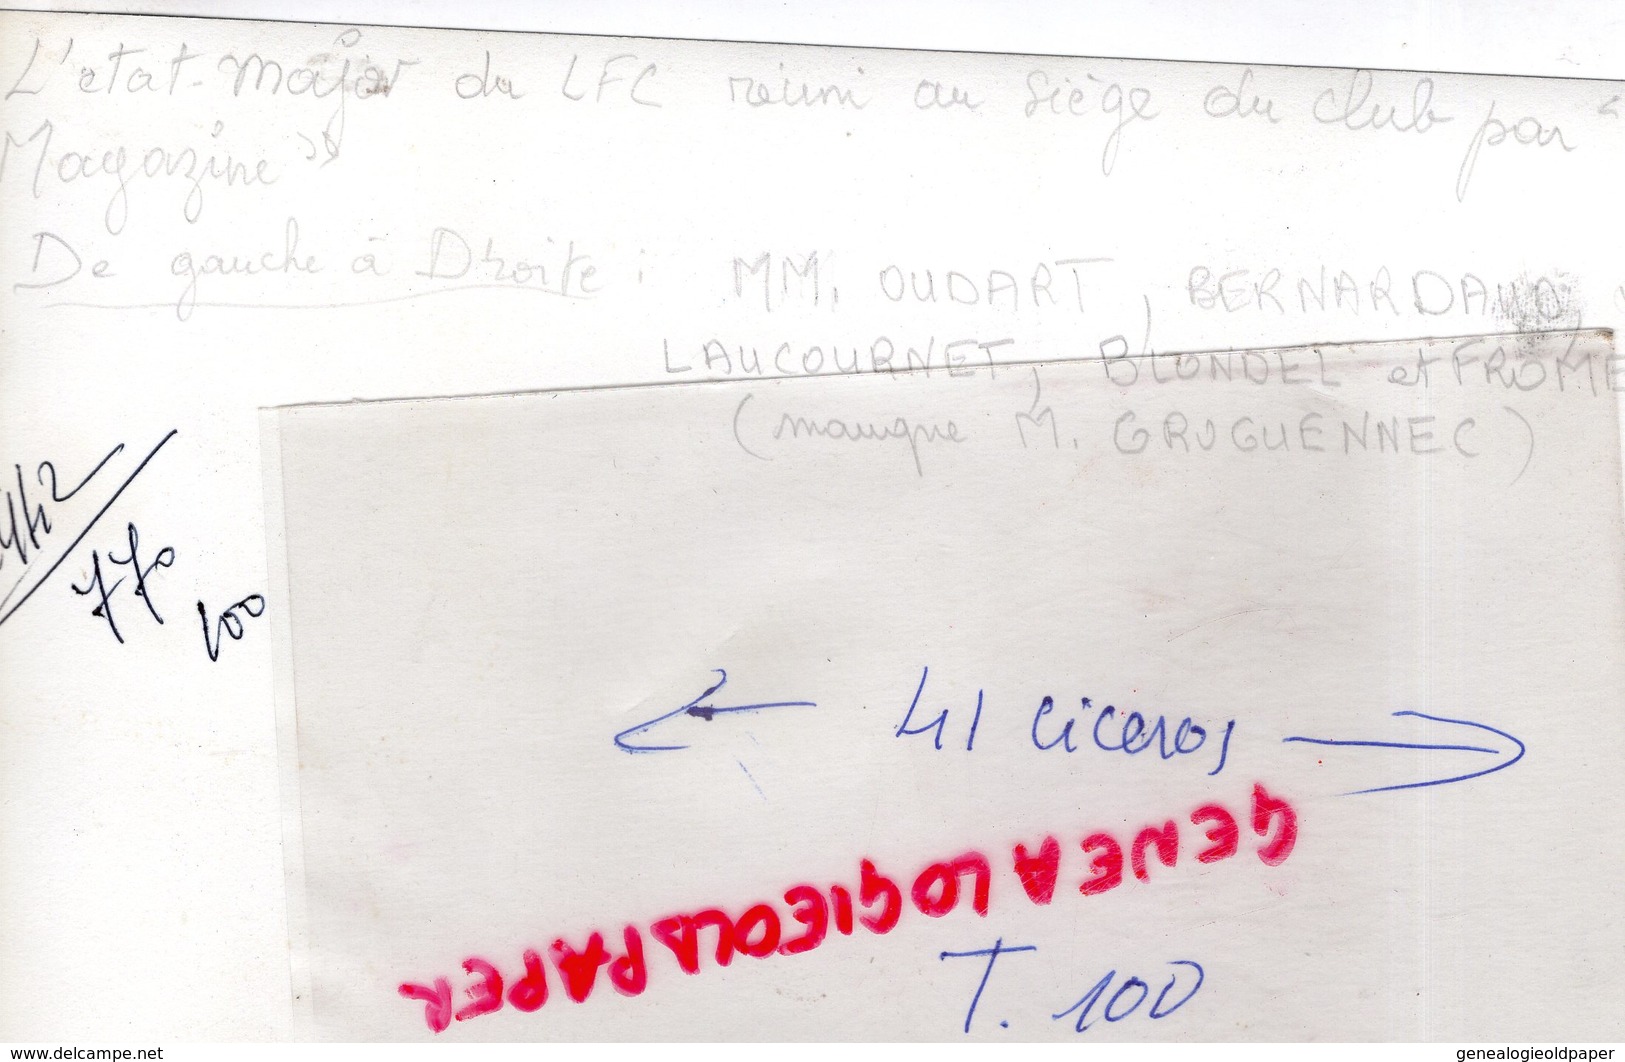 L'etat-major du LFC réuni au siège du club par "
Magazine"
De gauche à Droite : MM. OUDART, BERNARDAUD,
LAUCOURNET, BLONDEL et FROME
(manque M. GRUGUENNEC)
770
100
41 ciceros
GENEALOGIEOLDPAPER
T. 100
www.delcampe.net
genealogieoldpaper